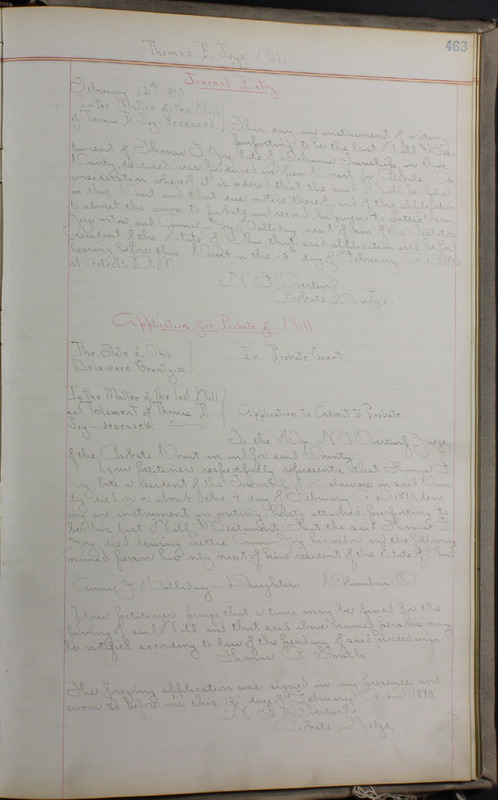 463
Thomas F. Joy's Will
Journal Entry
February 12th 1890
In the Matter of the Will
of Thomas F. Joy deceased
This day an instrument of writing
purporting to be the last Will & Tes-
tament of Thomas F. Joy late of Delaware Township in this
County deceased, was produced in open Court for Probate. In
consideration whereof it is ordered that the said Will be filed
in this Court, and that due notice thereof, and of the application
to admit the same to probate and record be given to Lettie Ann
Joy widow and Anna J. Halliday next of kin of the testator
resident of the State of Ohio that said application will be for
hearing before this Court on the 13th day of February A.D. 1890
at o'clock P.M.
N. F. Overturf
Probate Judge.
Application for Probate of Will
The State of Ohio
Delaware County ss
In Probate Court.
In the Matter of the last Will
and Testament of Thomas F.
Joy - deceased
Application to Admit to Probate.
To the Hon. N. F. Overturf, Judge
of the Probate Court in and for said County
Your petitioner respectfully represents that Thomas F.
Joy, late a resident of the Township of Delaware in said Coun-
ty, died on or about the 4 day of February A.D. 1890, leav-
ing an instrument in writing, hereto attached, purporting to
be his last Will & Testament: That the said Thomas F.
Joy, died leaving Lettie Ann Joy his widow and the following
named person his only next of kin resident of the State of Ohio
Anna J. Halliday - Daughter. Columbus O.
Your petitioner prays that a time may be fixed for the
proving of said Will, and that said above named persons may
be notified according to law of the pending of said proceedings
Thomas F. Smith
The foregoing application was signed in my presence and
sworn to before me, this 12 day of February A.D. 1890.
N. F. Overturf
Probate Judge